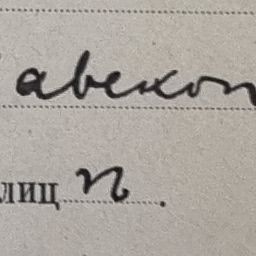 авекоп
лиц п.